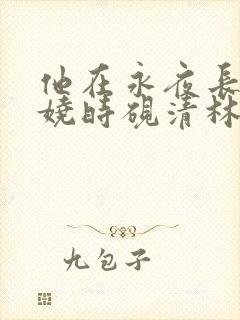 他在永夜長
嬈時硯清林
九包子